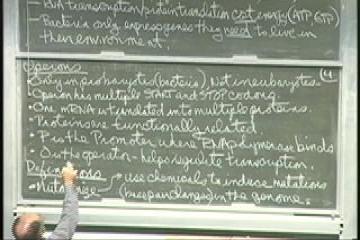 But transcription/protein translation cost energy (ATP, GTP)
- Bacteria only express genes they need to live in
their environment.
Operons
4
• Only in prokaryotes (bacteria), Not in eukaryotes.
• Operon has multiple START and STOP codons.
• One mRNA is translated into multiple proteins.
• Proteins are functionally related
• P is the Promoter where RNA polymerase binds
• O is the operator - helps regulate transcription.
• Mutagenize → use chemicals to induce mutations
(base pair changes) in the genome.